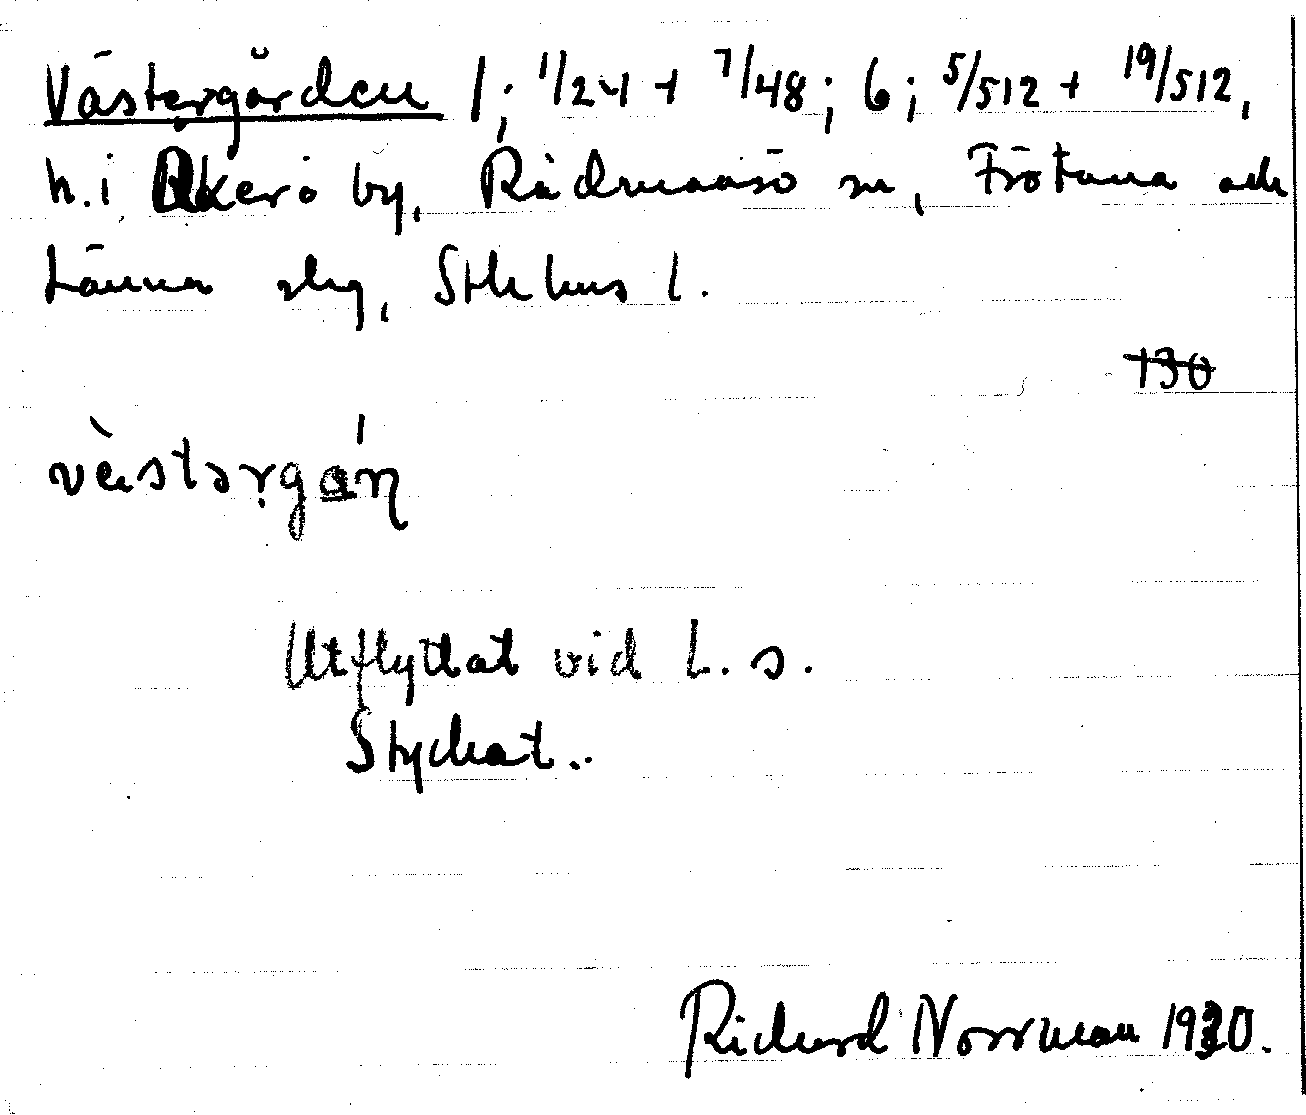 Västergården 1; 1/24 + 7/48; 6; 5/512 + 19/512,
h. i Åkerö by, Rådmansö sn, Frötuna och
Länna slg, Sthlms l.
130
västərgán
Utflyttat vid l. s.
Styckat..
Richard Norrman 1930.